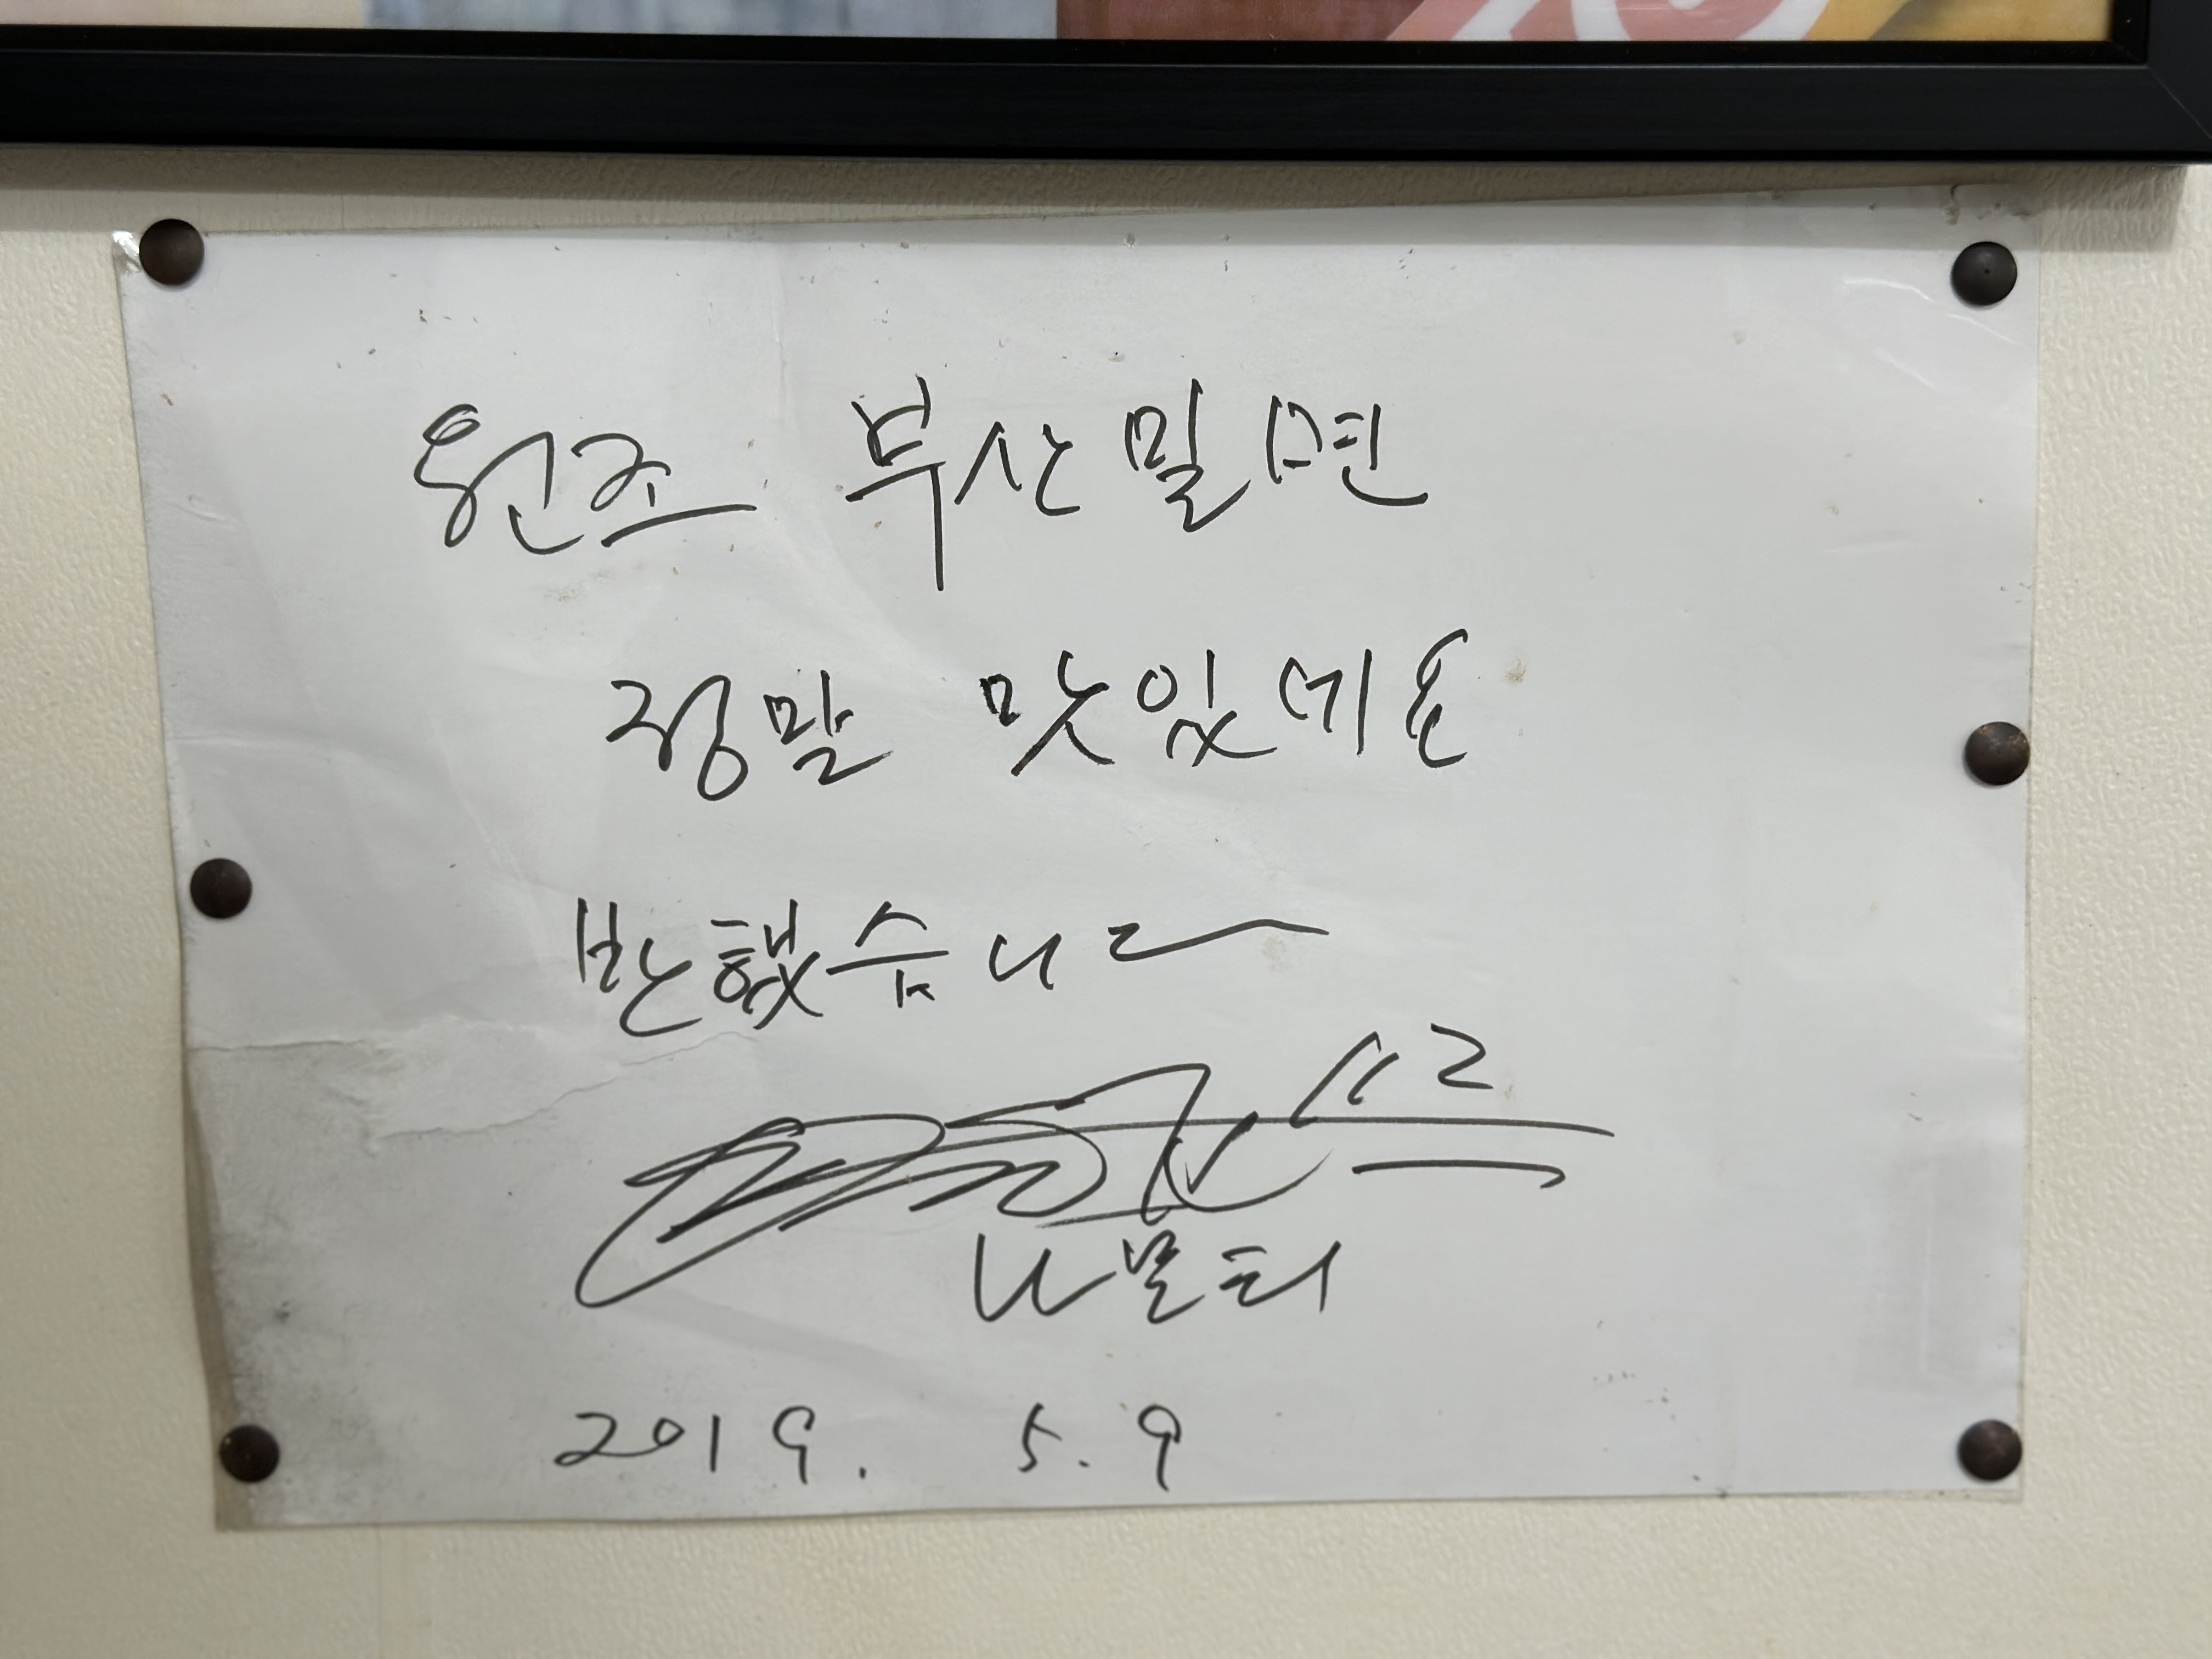 원조 부산밀면
정말 맛있네요
반했습니다
2019. 5. 9